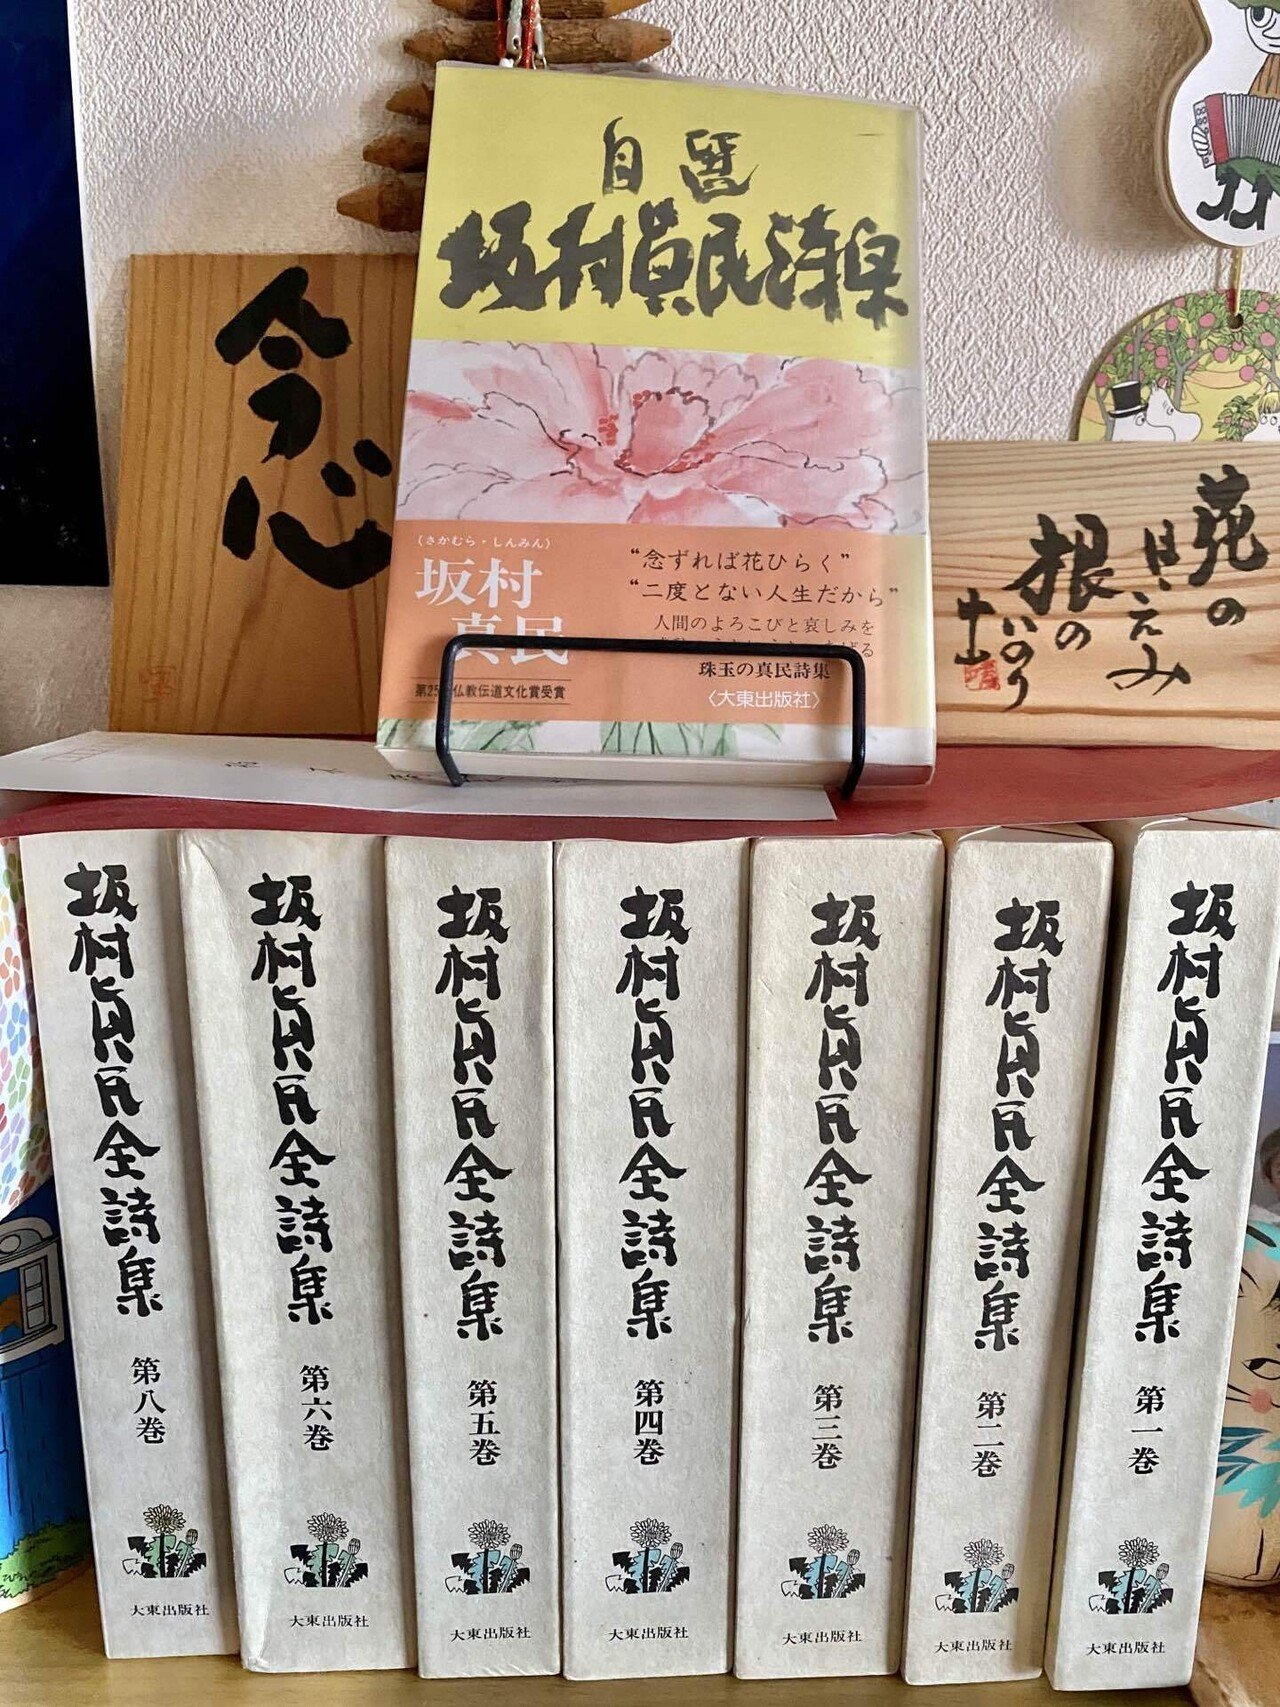 自選
坂村真民詩集
(さかむら・しんみん)
坂村
真民
仏教伝道文化賞受賞
“念ずれば花ひらく”
“二度とない人生だから”
人間のよろこびと哀しみを
珠玉の真民詩集
〈大東出版社〉
念
花の
根の
いのり
坂村真民全詩集 第八巻
大東出版社
坂村真民全詩集 第六巻
大東出版社
坂村真民全詩集 第五巻
大東出版社
坂村真民全詩集 第四巻
大東出版社
坂村真民全詩集 第三巻
大東出版社
坂村真民全詩集 第二巻
大東出版社
坂村真民全詩集 第一巻
大東出版社